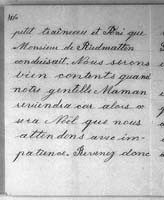 petit traîneau et
que
Monsieur de Riedmatten
conduisait. Nous serons
bien contents quand
notre gentille Maman
reviendra car alors ce
sera Noël que nous
attendons avec im-
patience. Revenez donc